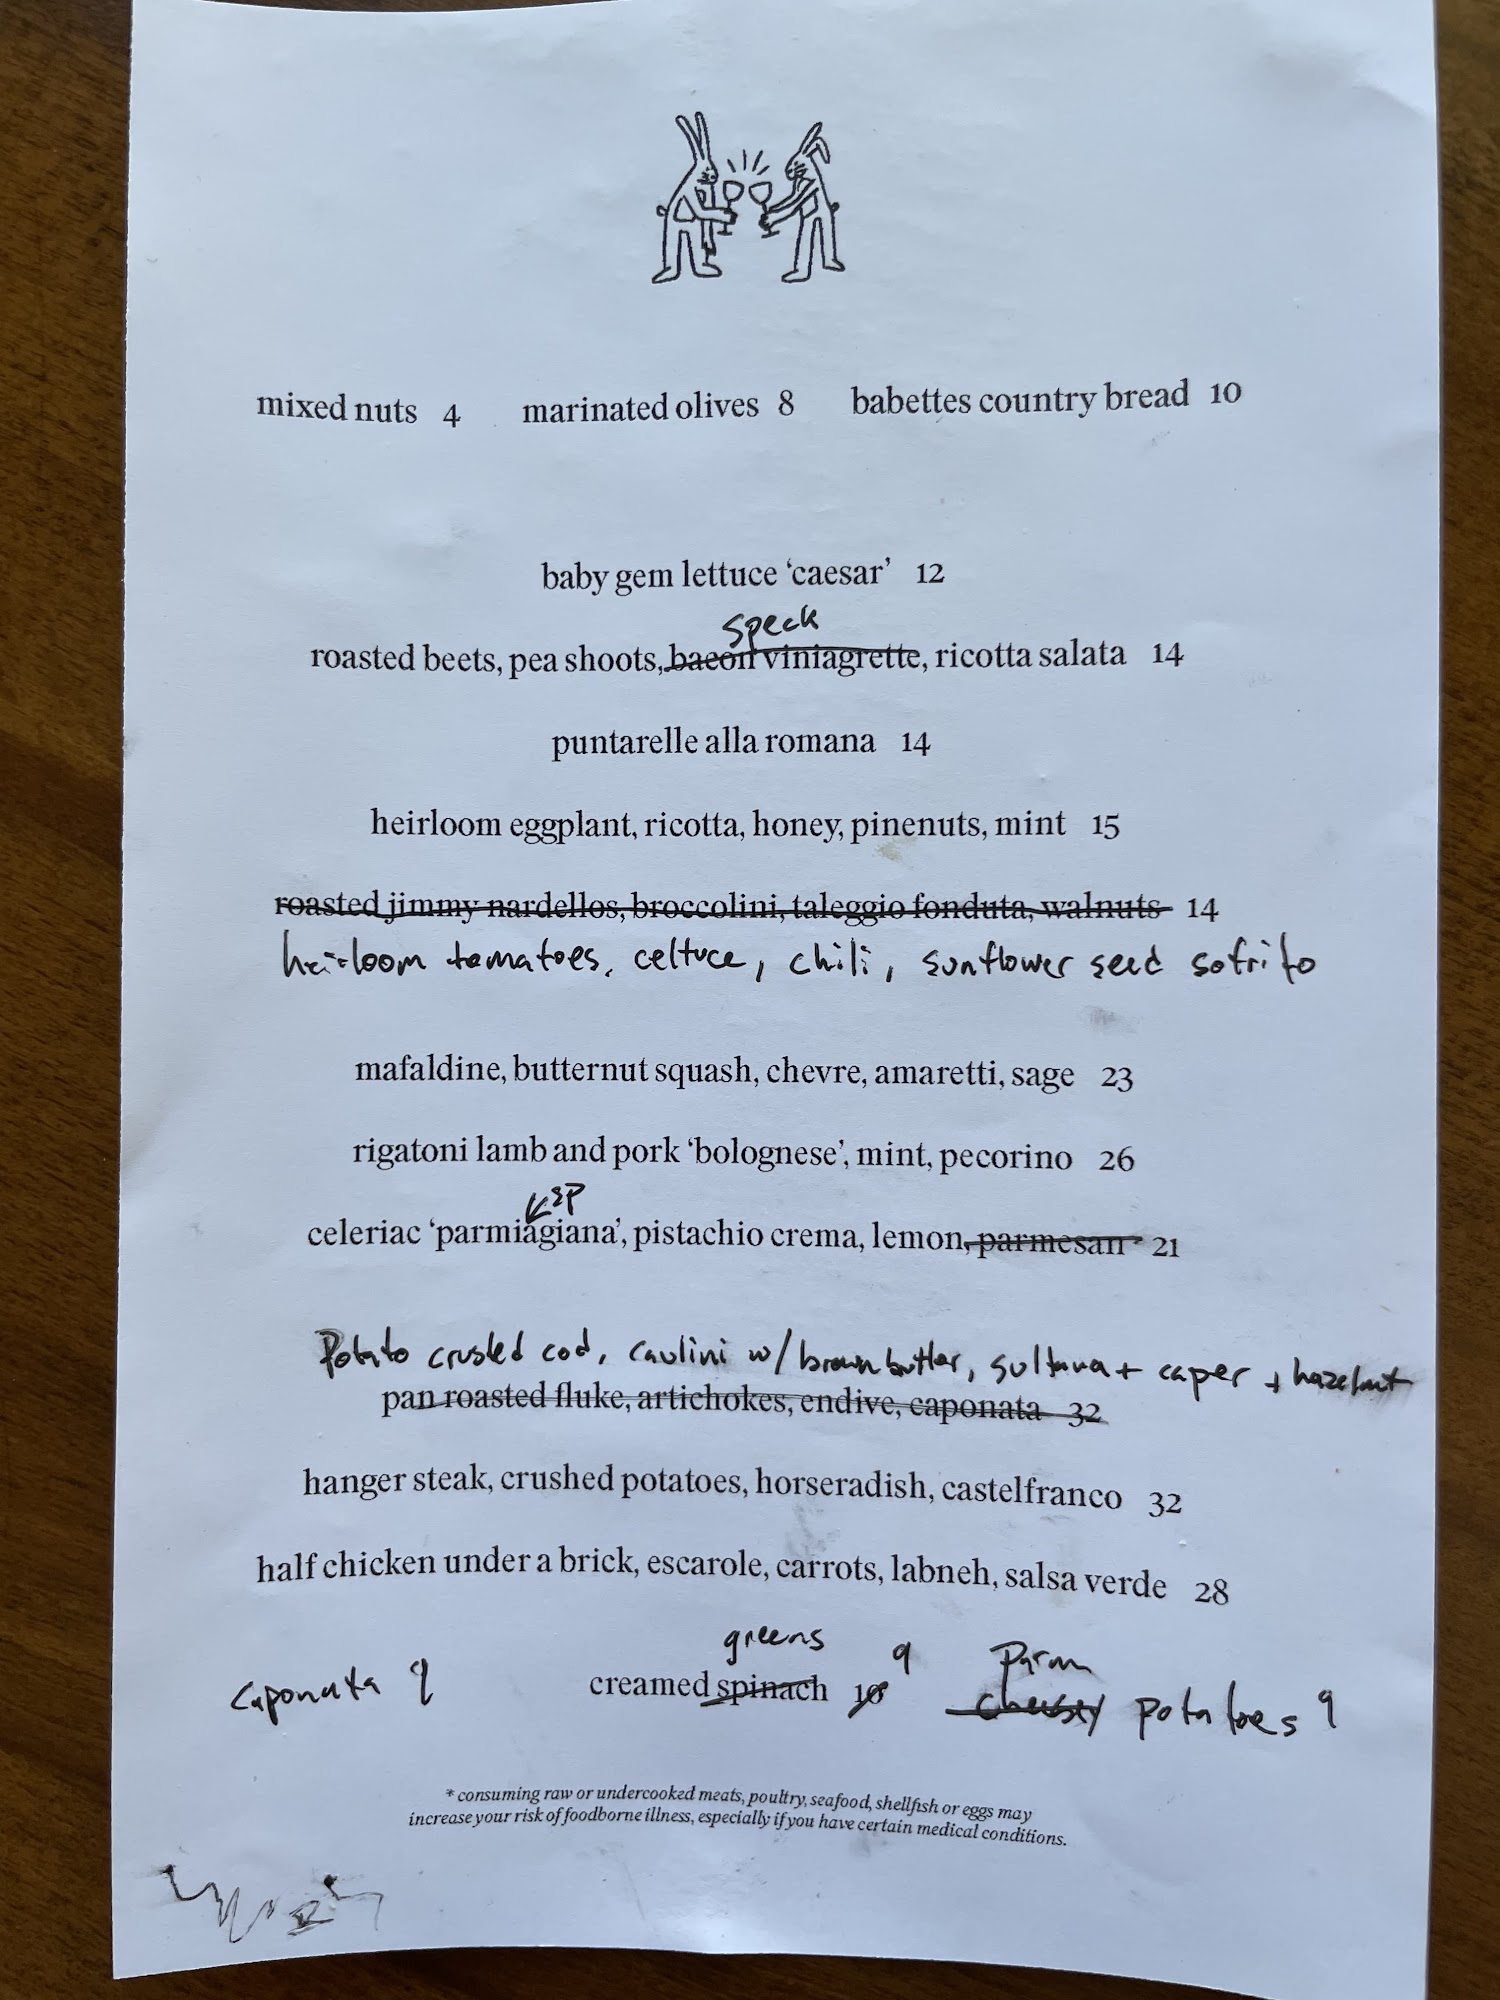 mixed nuts 4 marinated olives 8 babettes country bread 10
baby gem lettuce ‘caesar’ 12
speck
roasted beets, pea shoots, bacon viniagrette, ricotta salata 14
puntarelle alla romana 14
heirloom eggplant, ricotta, honey, pinenuts, mint 15
roasted jimmy nardellos, broccolini, taleggio fonduta, walnuts 14
heirloom tomatoes, celtuce, chili, sunflower seed sofrito
mafaldine, butternut squash, chevre, amaretti, sage 23
rigatoni lamb and pork ‘bolognese’, mint, pecorino 26
SP
celeriac ‘parmiagiana’, pistachio crema, lemon, parmesan 21
Potato crusted cod, caulini w/ brown butter, sultana + caper + hazelnut
pan roasted fluke, artichokes, endive, caponata 32
hanger steak, crushed potatoes, horseradish, castelfranco 32
half chicken under a brick, escarole, carrots, labneh, salsa verde 28
greens 9 Parm
caponata 9 creamed spinach 10 cheesy potatoes 9
* consuming raw or undercooked meats, poultry, seafood, shellfish or eggs may
increase your risk of foodborne illness, especially if you have certain medical conditions.